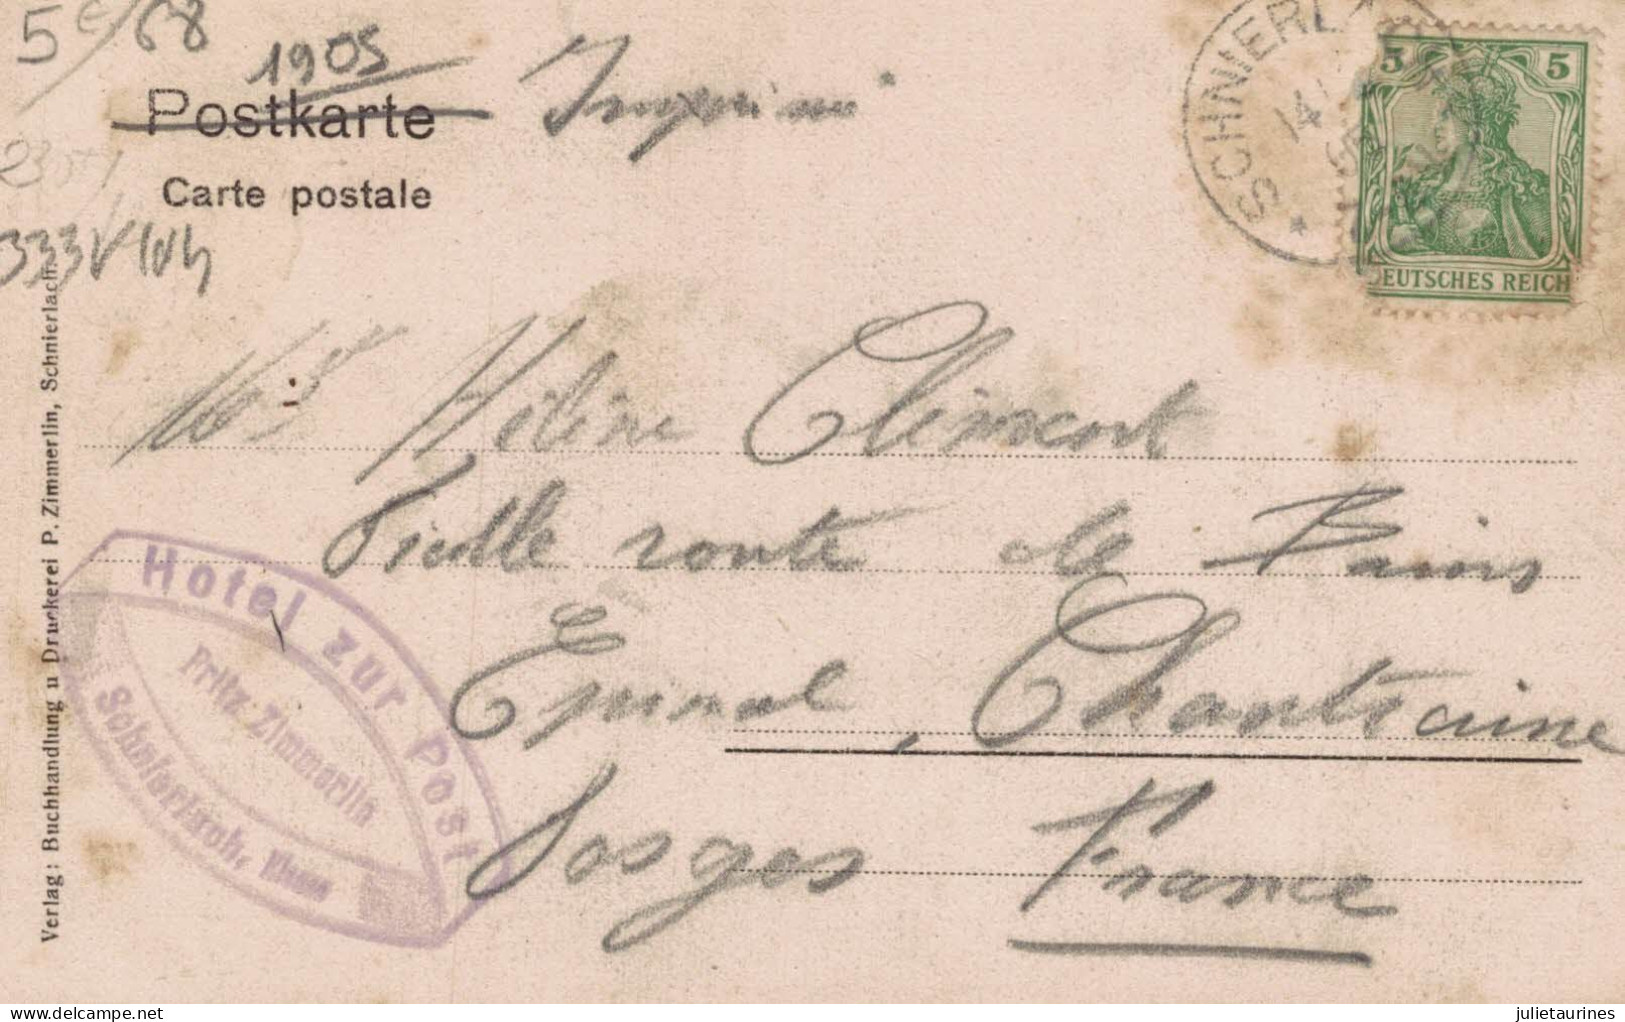 5 € / 68
1905
Postkarte
Imprimé
Carte postale
SCHNIERLA
14
5 5
DEUTSCHES REICH
Hélène Clément
Vieille route de Bains
Epinal, Chantraine
Vosges France
Hotel zur Post
Fritz Zimmerlin
Schnierlach, Elsass
Verlag: Buchhandlung u Druckerei P. Zimmerlin, Schnierlach.
delcampe.net
julietaurines